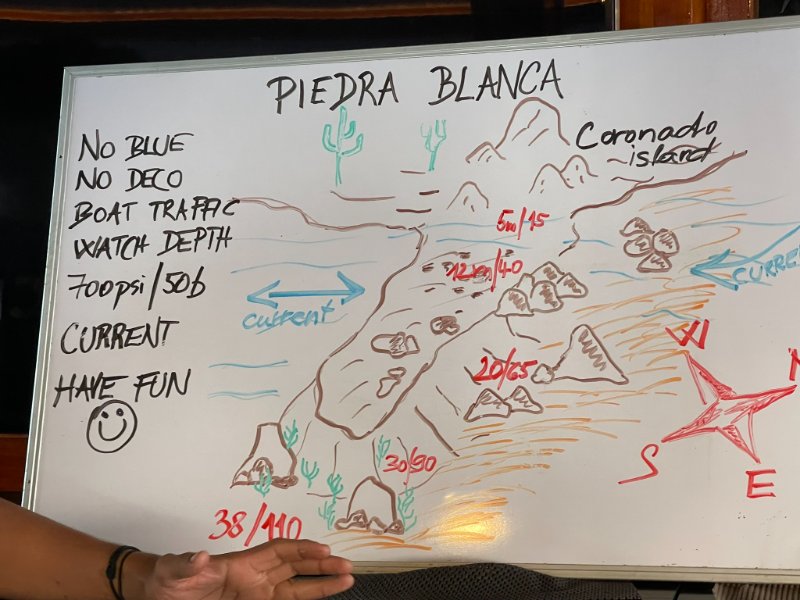 PIEDRA BLANCA
NO BLUE
NO DECO
BOAT TRAFFIC
WATCH DEPTH
700psi/50b
CURRENT
HAVE FUN
Coronado
island
5m/15
12m/40
20/65
30/90
38/110
current
CURREN
W
N
S
E